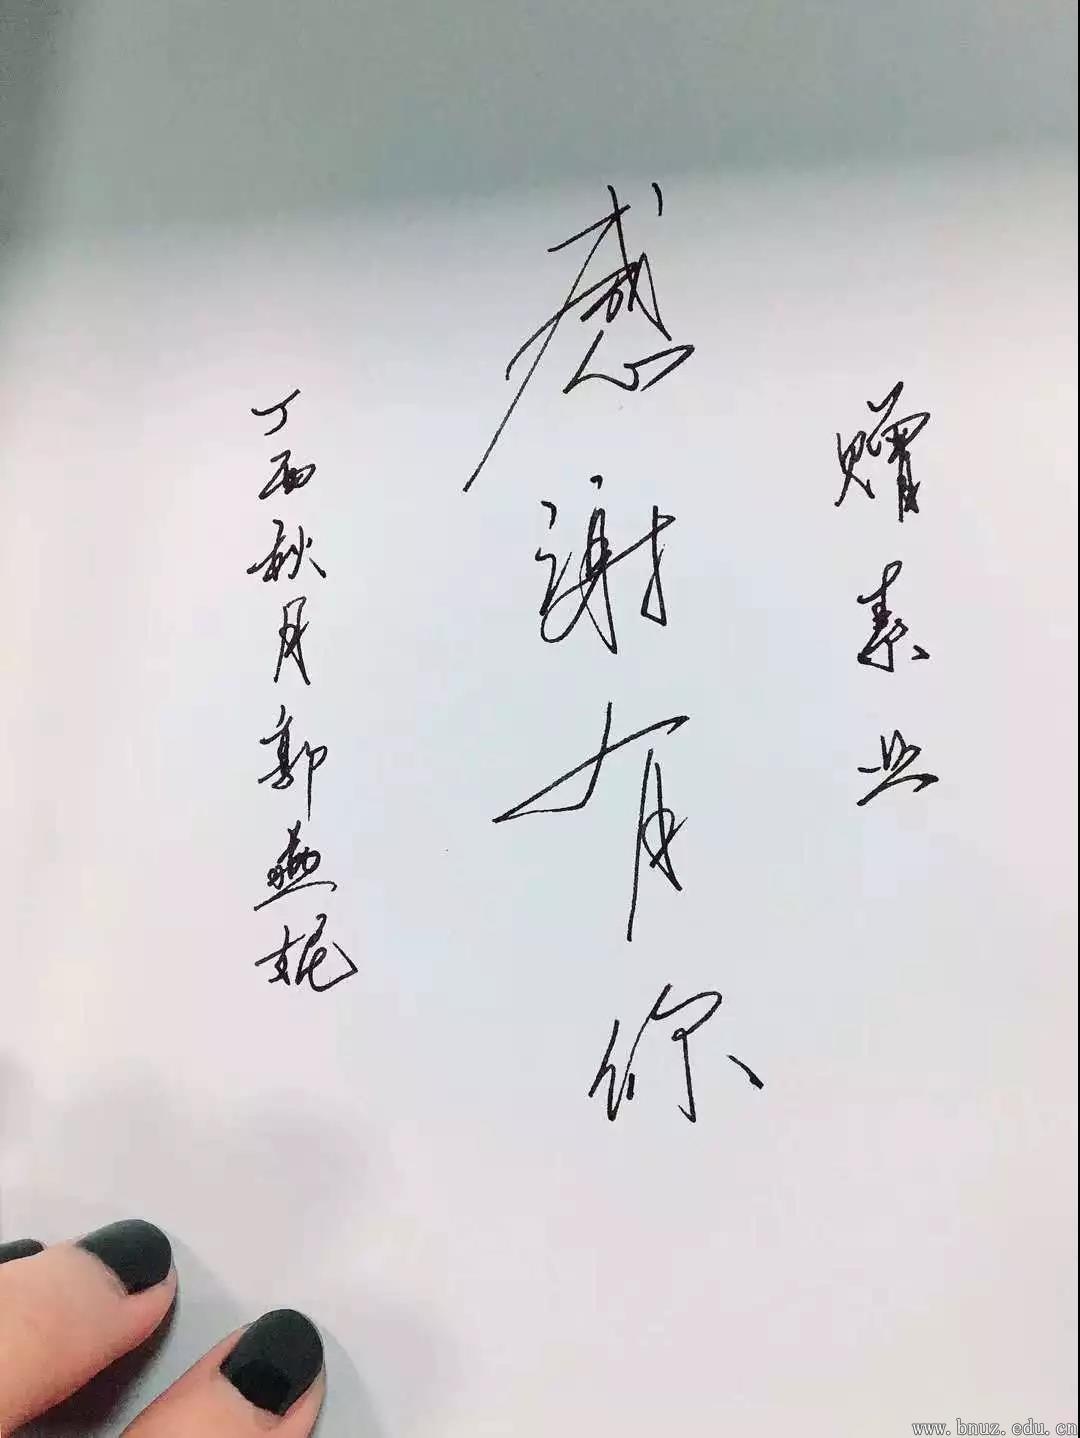 赠素业
感谢有你
丁酉秋月郭燕妮
www.bnuz.edu.cn